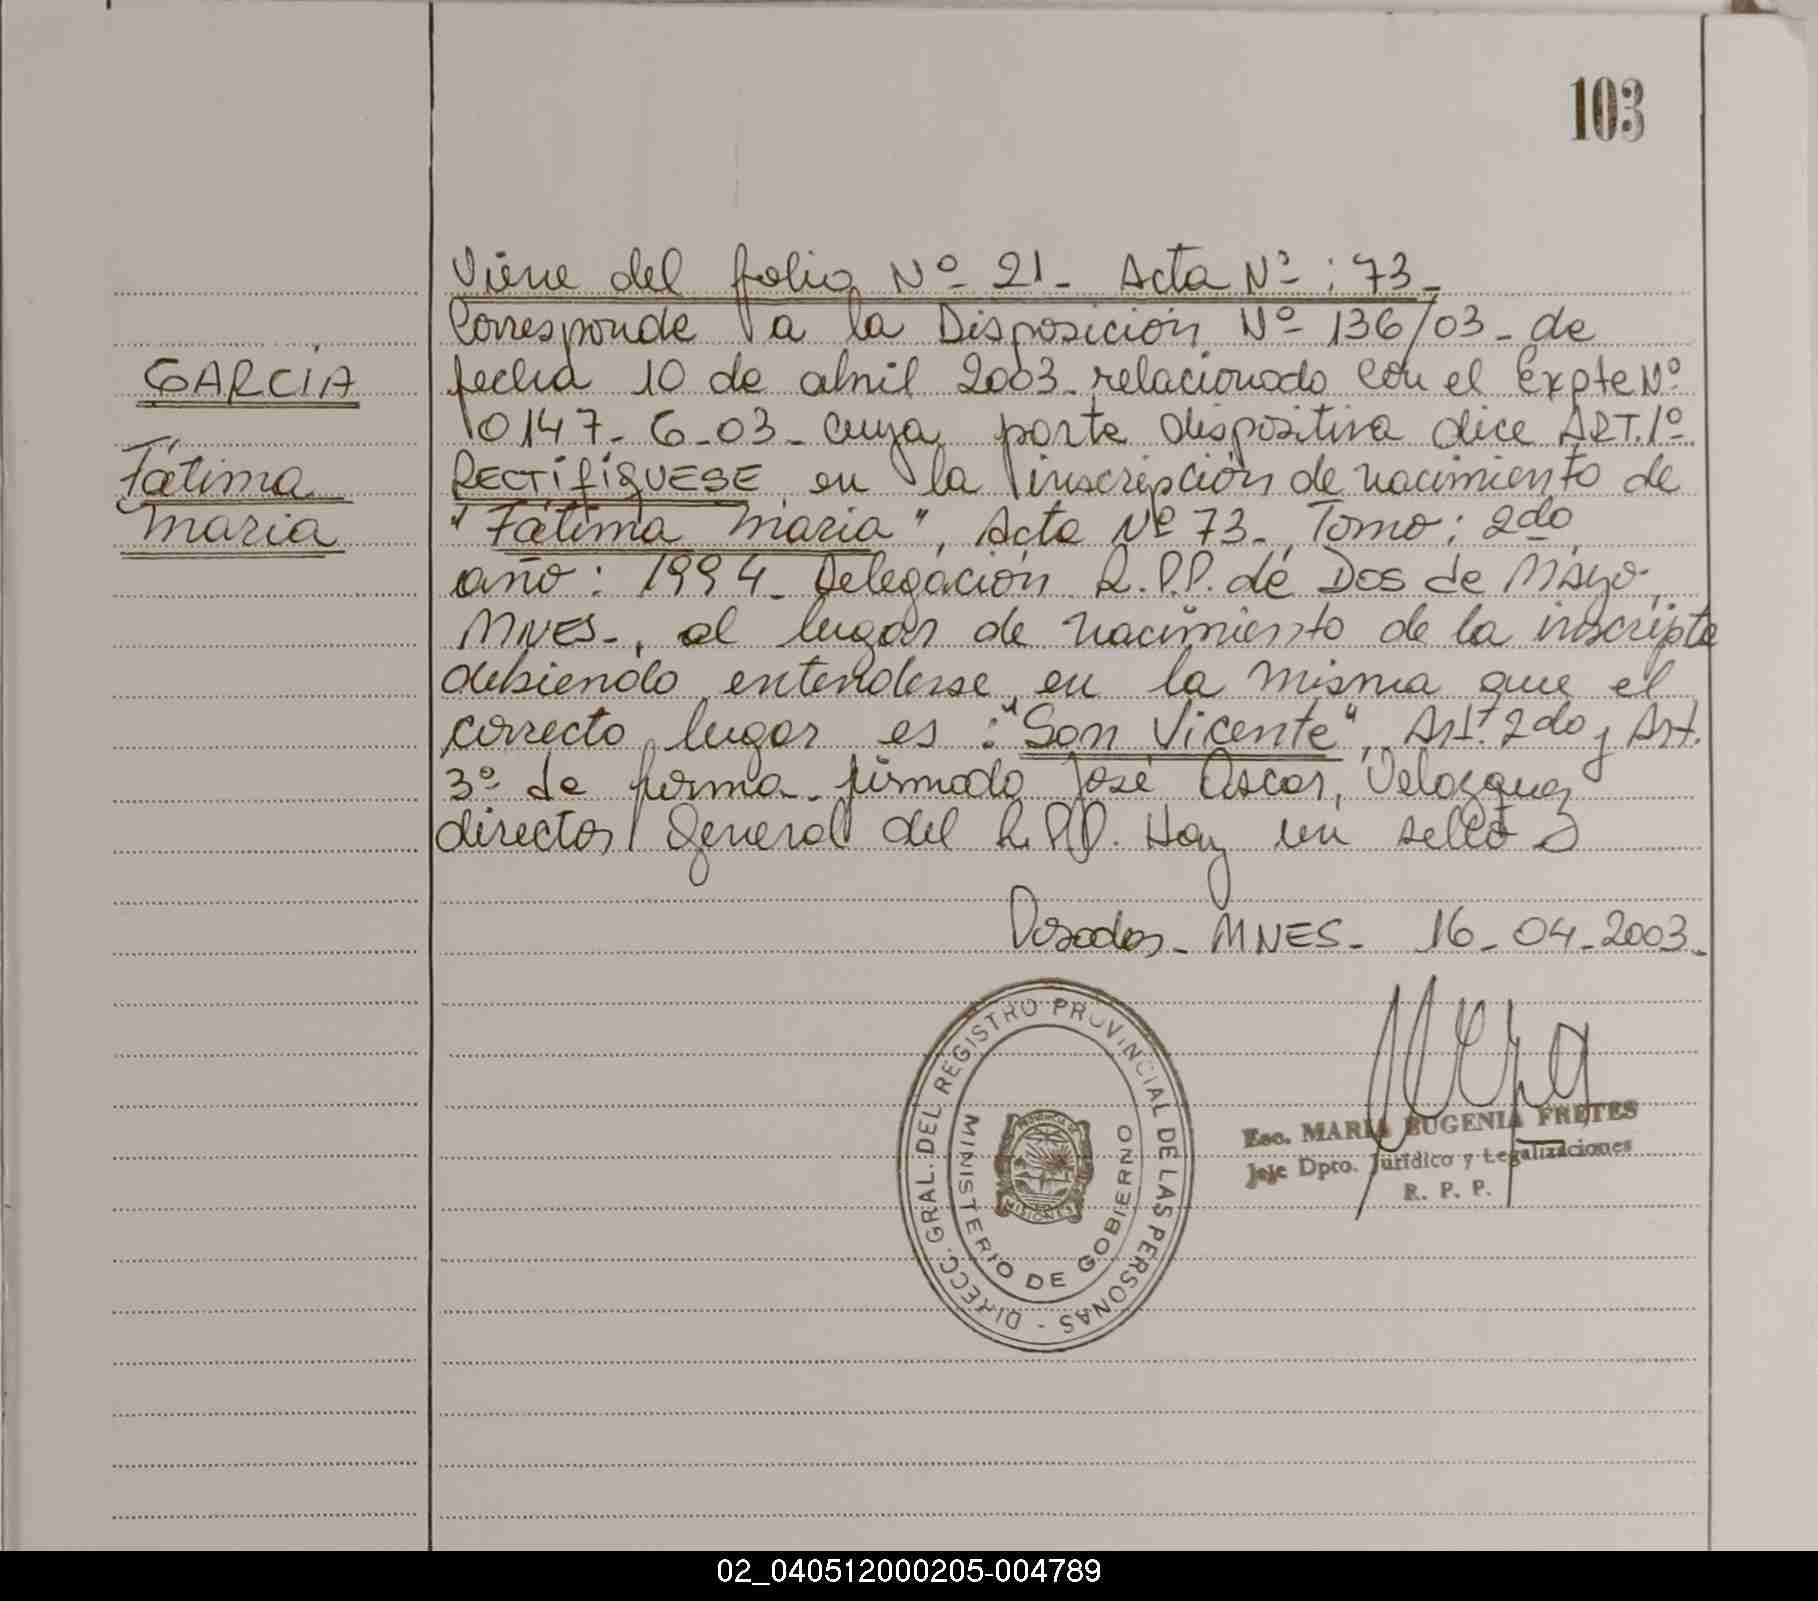 103
Viene del folio Nº 21- Acta Nº: 73-
Corresponde a la Disposición Nº 136/03- de
GARCÍA
fecha 10 de abril 2003- relacionado con el Expte Nº
10147- G-03- cuya parte dispositiva dice ART. 1º
Fátima
RECTIFÍQUESE, en la inscripción de nacimiento de
María
"Fátima María", Acta Nº 73-, Tomo: 2do,
año: 1994- Delegación R.P.P. de Dos de Mayo,
MNES-, el lugar de nacimiento de la inscripta
debiendo entenderse en la misma que el
correcto lugar es: "San Vicente", Art. 2do y Art.
3º de forma- firmado José Oscar, Velazquez
director General del R.P.P. Hay un sello
Posadas- MNES- 16-04-2003-
DIRECC. GRAL. DEL REGISTRO PROVINCIAL DE LAS PERSONAS -
MINISTERIO DE GOBIERNO
PROVINCIA DE
MISIONES
Esc. MARIA EUGENIA FRETES
Jefe Dpto. Jurídico y Legalizaciones
R. P. P.
02_040512000205-004789